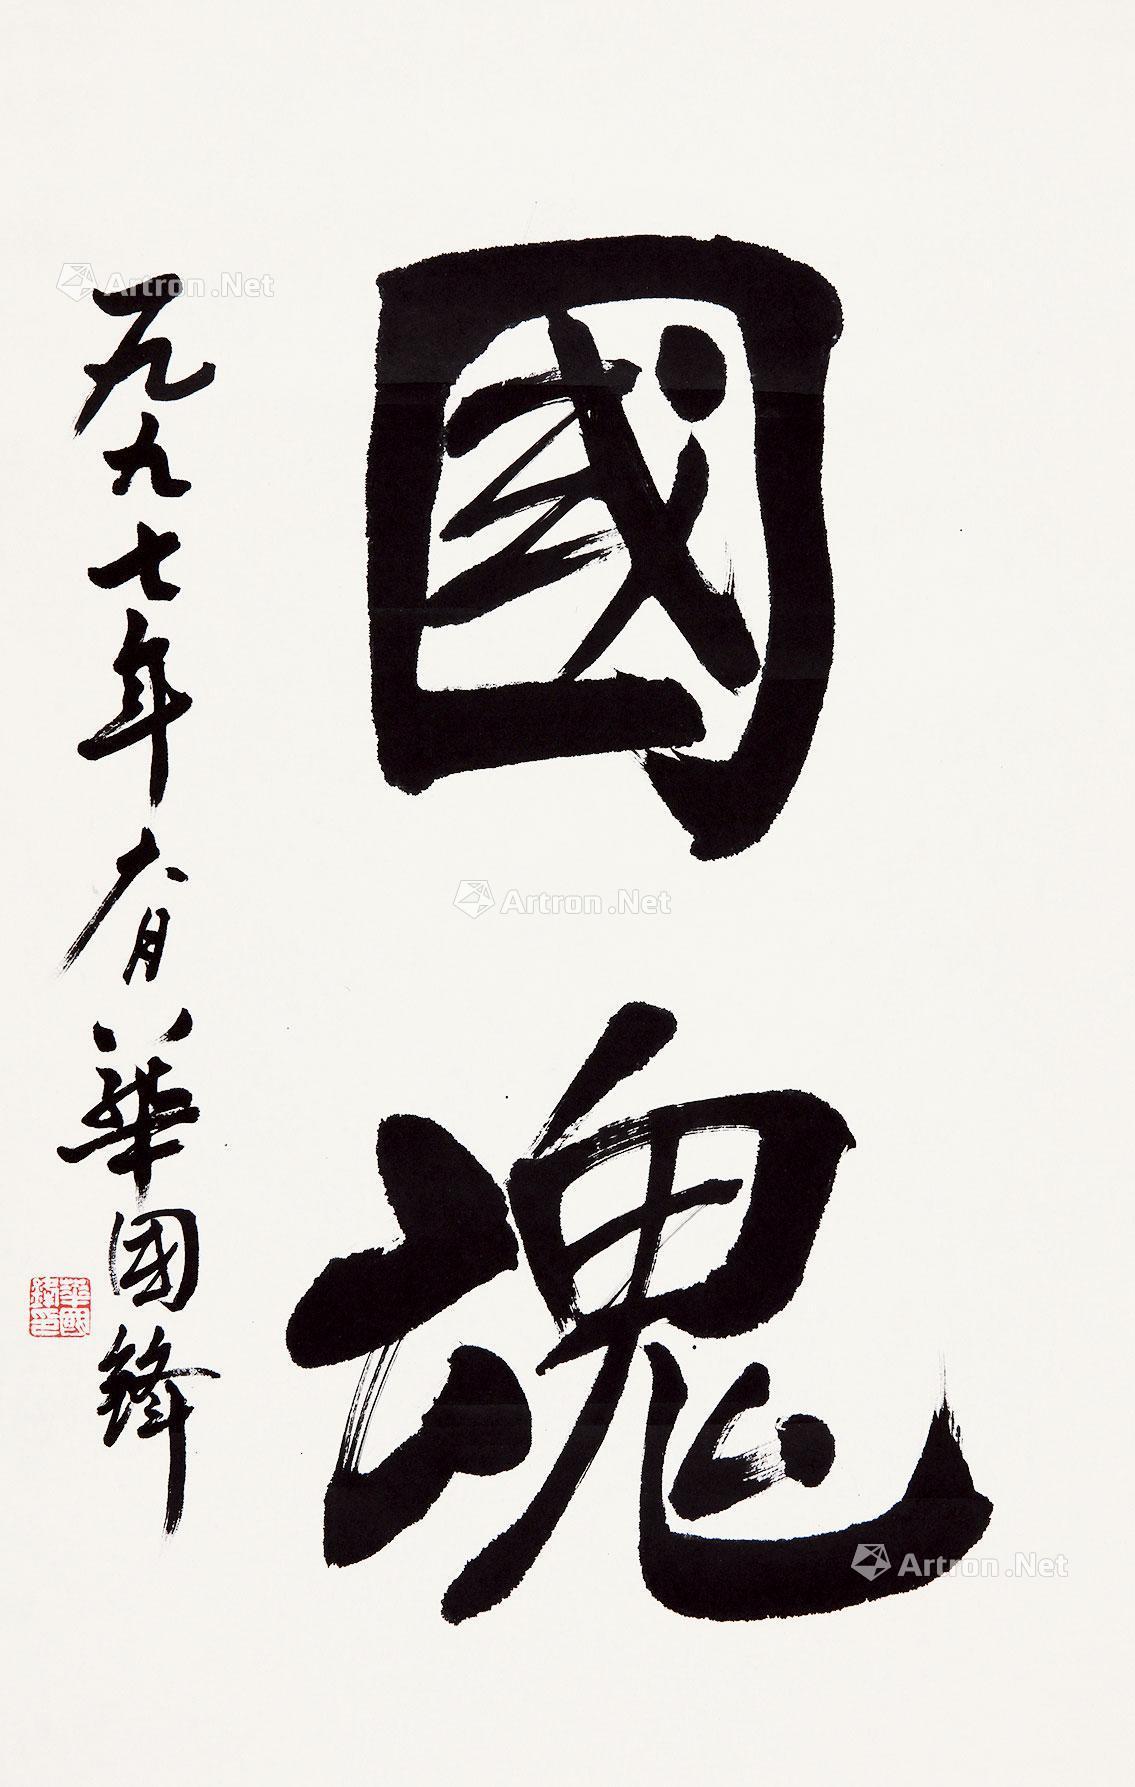 國魂
一九九七年六月 華國鋒
華國鋒印
Artron.Net
Artron.Net
Artron.Net